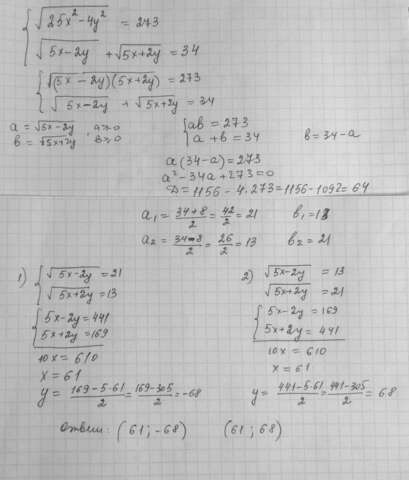 √(25x² - 4y²) = 273
√(5x - 2y) + √(5x + 2y) = 34
√((5x - 2y)(5x + 2y)) = 273
√(5x - 2y) + √(5x + 2y) = 34
a = √(5x - 2y), a ≥ 0
b = √(5x + 2y), b ≥ 0
{ab = 273
a + b = 34 b = 34 - a
a(34 - a) = 273
a² - 34a + 273 = 0
D = 1156 - 4·273 = 1156 - 1092 = 64
a₁ = (34 + 8)/2 = 42/2 = 21 b₁ = 13
a₂ = (34 - 8)/2 = 26/2 = 13 b₂ = 21
1) {√(5x - 2y) = 21
√(5x + 2y) = 13
{5x - 2y = 441
5x + 2y = 169
10x = 610
x = 61
y = (169 - 5·61)/2 = (169 - 305)/2 = -68
2) √(5x - 2y) = 13
√(5x + 2y) = 21
{5x - 2y = 169
5x + 2y = 441
10x = 610
x = 61
y = (441 - 5·61)/2 = (441 - 305)/2 = 68
Ответ: (61; -68) (61; 68)